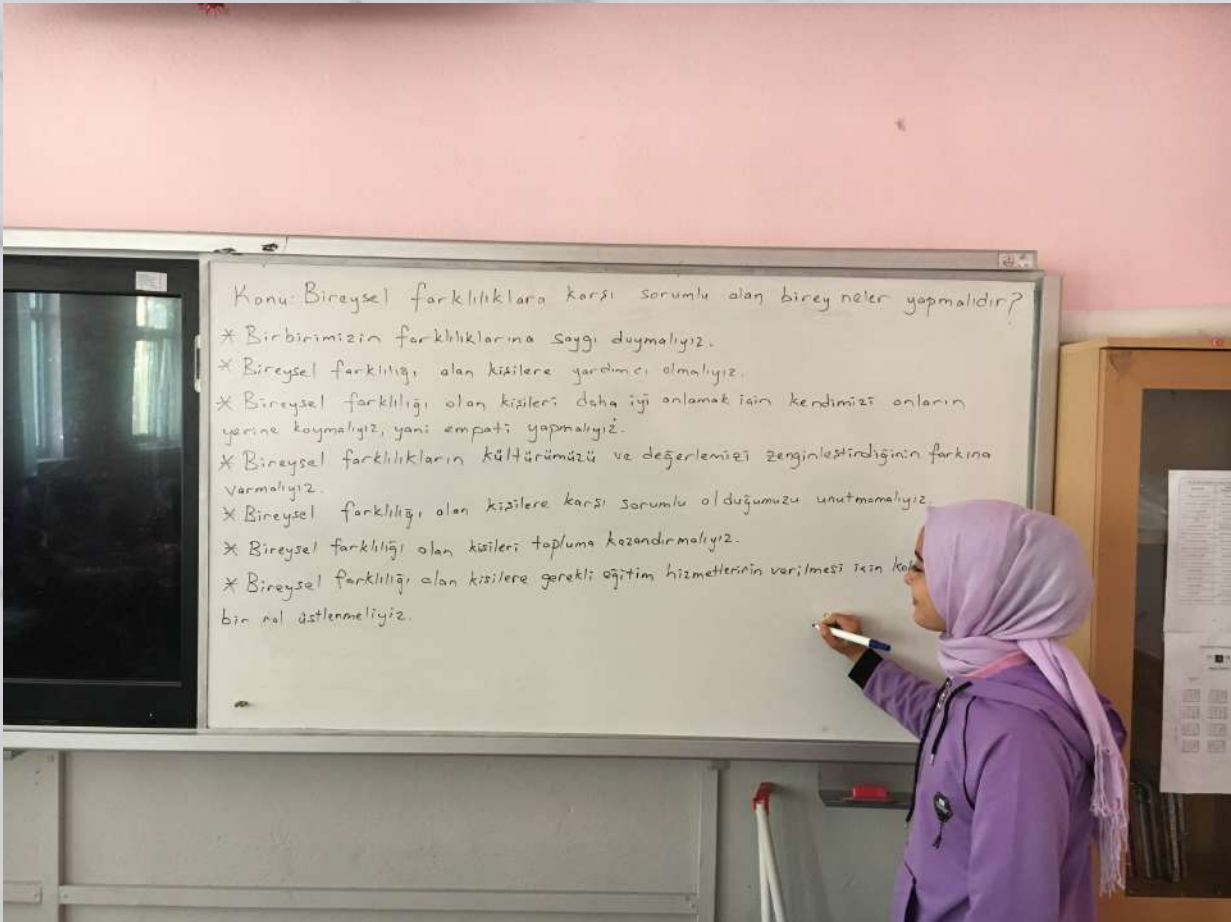 Konu: Bireysel farklılıklara karşı sorumlu olan birey neler yapmalıdır?
* Birbirimizin farklılıklarına saygı duymalıyız.
* Bireysel farklılığı olan kişilere yardımcı olmalıyız.
* Bireysel farklılığı olan kişileri daha iyi anlamak için kendimizi onların
yerine koymalıyız, yani empati yapmalıyız.
* Bireysel farklılıkların kültürümüzü ve değerlemizi zenginleştirdiğinin farkına
varmalıyız.
* Bireysel farklılığı olan kişilere karşı sorumlu olduğumuzu unutmamalıyız.
* Bireysel farklılığı olan kişileri topluma kazandırmalıyız.
* Bireysel farklılığı olan kişilere gerekli eğitim hizmetlerinin verilmesi için
bir rol üstlenmeliyiz.